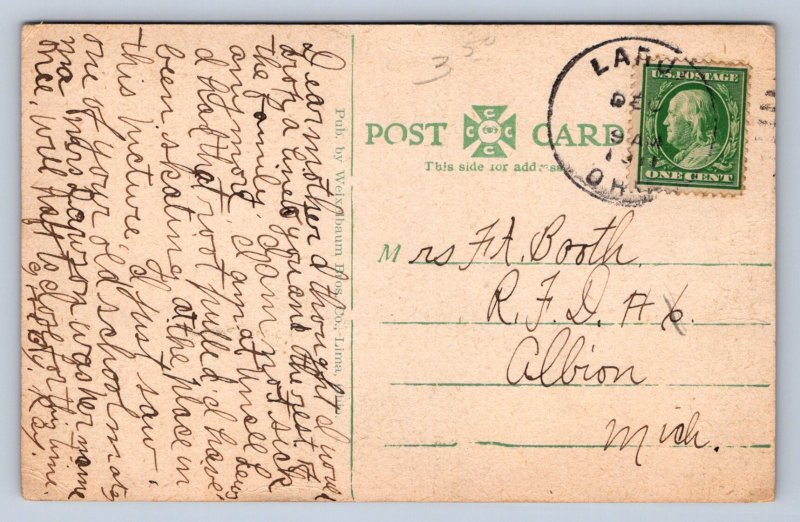 Dear mother I thought I would
drop a line to you and the rest of
the family. I am not sick
any more. I am at Uncle Lews
I had that root pulled I have
been skating at the place in
this picture, I just saw
one of your old school mates
Mrs Lawson was her name
Kee, will have to close for this time.
Ray.
Pub. by Weixelbaum Bros. Co., Lima, Ohio
350
POST CARD
This side for address
LARUE
DEC
9 AM
OHIO
U.S. POSTAGE
ONE CENT
Mrs F. A. Booth
R. F. D. # 6
Albion
Mich.